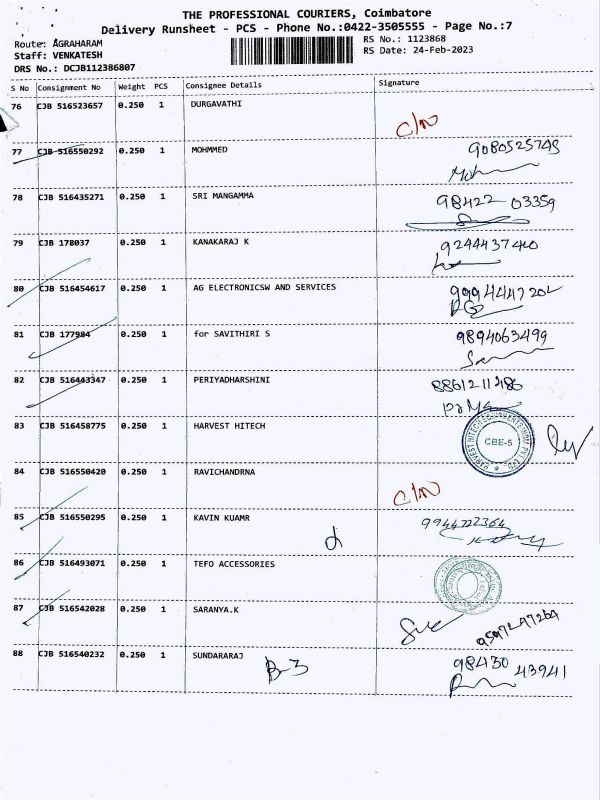 THE PROFESSIONAL COURIERS, Coimbatore
Delivery Runsheet - PCS - Phone No.:0422-3505555 - Page No.:7
Route: AGRAHARAM
RS No.: 1123868
Staff: VENKATESH
RS Date: 24-Feb-2023
DRS No.: DCJB112386807
S No Consignment No Weight PCS Consignee Details Signature
76 CJB 516523657 0.250 1 DURGAVATHI
C/N
77 CJB 516550292 0.250 1 MOHMMED 9080525745
78 CJB 516435271 0.250 1 SRI MANGAMMA 98422 03359
79 CJB 178037 0.250 1 KANAKARAJ K 9244437440
80 CJB 516454617 0.250 1 AG ELECTRONICSW AND SERVICES 9994447202
81 CJB 177984 0.250 1 for SAVITHIRI S 9894063499
82 CJB 516443347 0.250 1 PERIYADHARSHINI 8861211486
83 CJB 516458775 0.250 1 HARVEST HITECH
CBE-5
84 CJB 516550420 0.250 1 RAVICHANDRNA
C/N
85 CJB 516550295 0.250 1 KAVIN KUAMR 9944722364
86 CJB 516493071 0.250 1 TEFO ACCESSORIES
87 CJB 516542028 0.250 1 SARANYA.K
88 CJB 516540232 0.250 1 SUNDARARAJ B-3 98430 43941